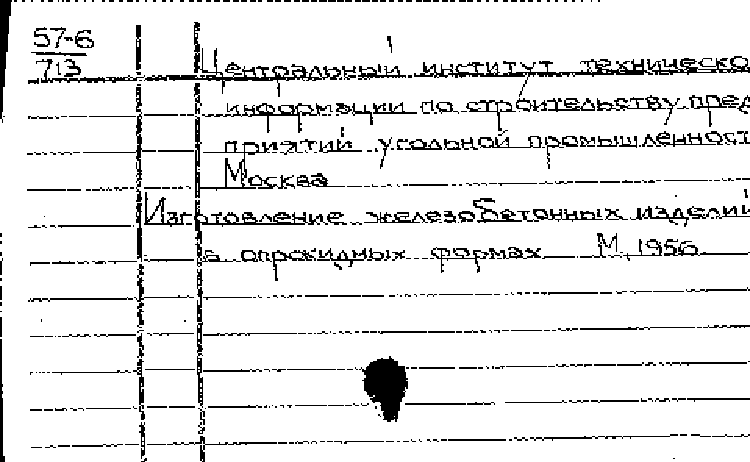 57-6
713
Центральный институт техническо
информации по строительству пред
приятий угольной промышленност
Москва
Изготовление железобетонных изделий
в опрокидных формах М, 1956